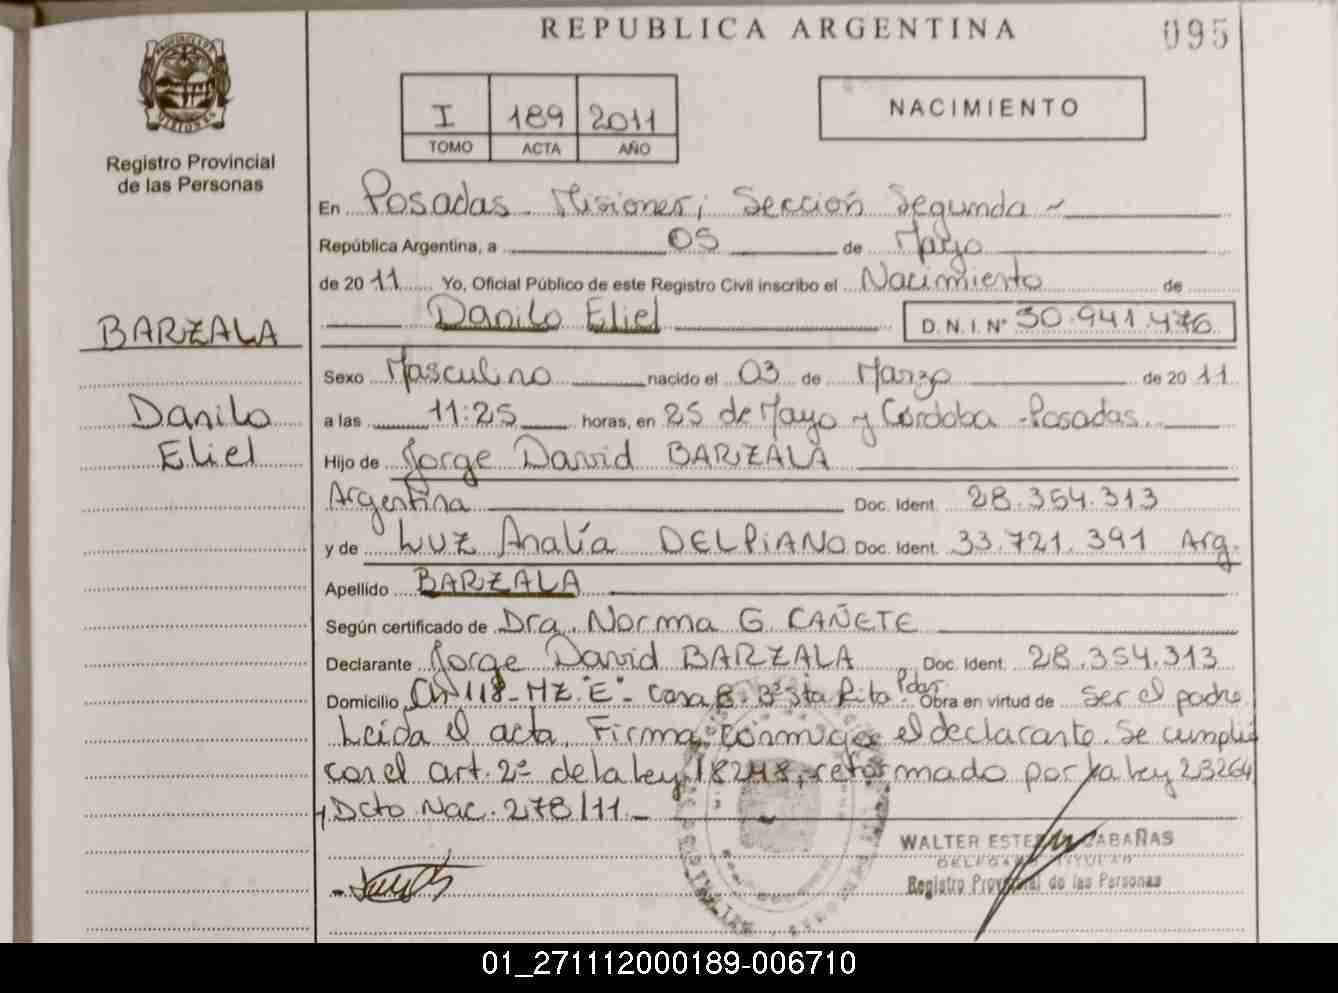 REPUBLICA ARGENTINA
095
PROVINCIA DE MISIONES
Registro Provincial
de las Personas
I 189 2011
TOMO ACTA AÑO
NACIMIENTO
En Posadas Misiones, Sección Segunda
República Argentina, a 05 de Mayo
de 2011 Yo, Oficial Público de este Registro Civil inscribo el Nacimiento de
Danilo Eliel D.N.I. N° 50.941.476
BARZALA
Danilo
Eliel
Sexo Masculino nacido el 03 de Marzo de 2011
a las 11:25 horas, en 25 de Mayo y Córdoba - Posadas.
Hijo de Jorge David BARZALA
Argentina Doc. Ident. 28.354.313
y de Luz Analía DELPiANO Doc. Ident. 33.721.391 Arg.
Apellido BARZALA
Según certificado de Dra. Norma G. CAÑETE
Declarante Jorge David BARZALA Doc. Ident. 28.354.313
Domicilio Ch 118 - MZ. "E" - Casa 8 - B° Sta Rita Pdas. Obra en virtud de ser el padre.
Leida el acta, Firma conmigo el declarante. Se cumplió
con el art. 2° de la Ley 18248, reformado por la Ley 23264
y Dcto Nac. 278/11.-
WALTER ESTEBAN CABAÑAS
DELEGADO TITULAR
Registro Provincial de las Personas
01_271112000189-006710